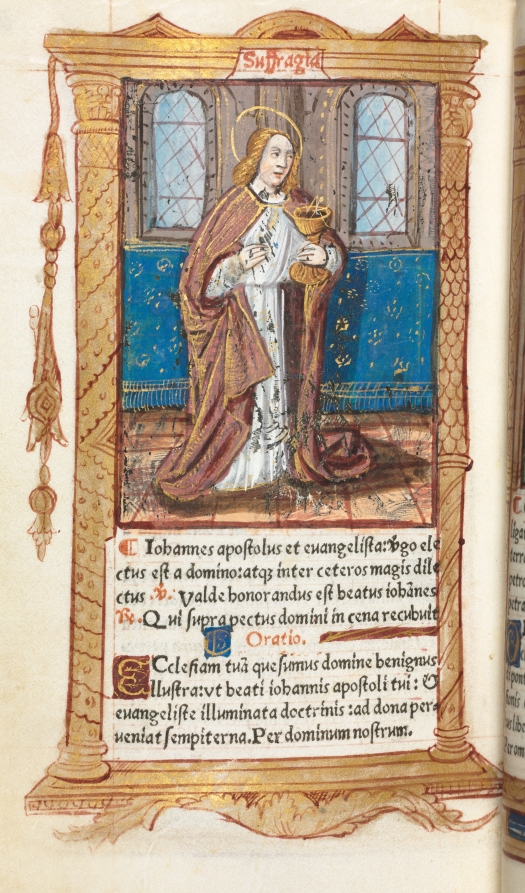 Suffragia
Iohannes apostolus et euangelista: vgo ele
ctus est a domino: atqꝫ inter ceteros magis dile
ctus ℣. Valde honorandus est beatus iohānes
℟. Qui supra pectus domini in cena recubuit
Oratio.
ECclesiam tuā quesumus domine benignus
illustra: vt beati iohannis apostoli tui: &
euangeliste illuminata doctrinis: ad dona per
ueniat sempiterna. Per dominum nostrum.